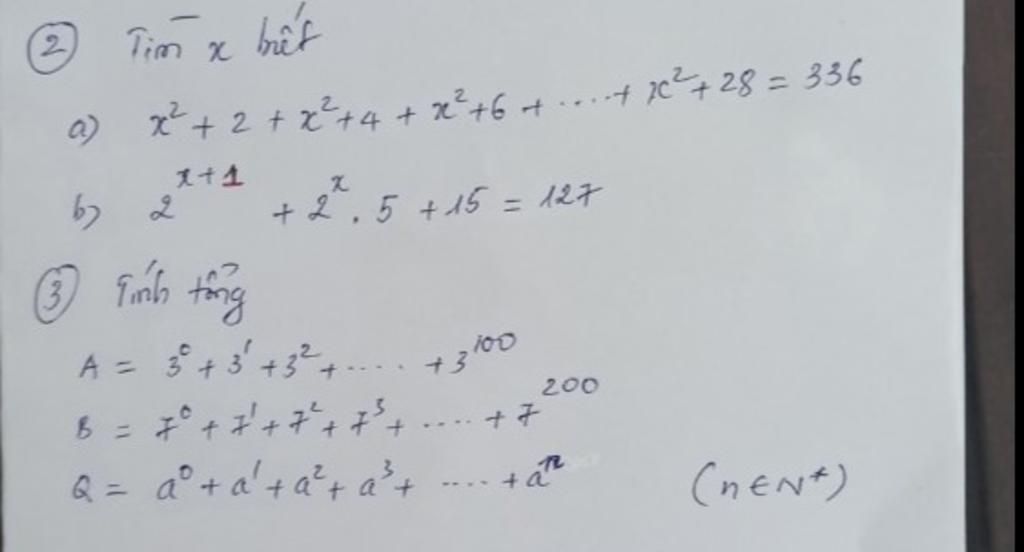 ② Tìm x biết
a) x² + 2 + x² + 4 + x² + 6 + ....+ x² + 28 = 336
b) 2^{x+1} + 2^x . 5 + 15 = 127
③ Tính tổng
A = 3⁰ + 3¹ + 3² + .... + 3¹⁰⁰
B = 7⁰ + 7¹ + 7² + 7³ + .... + 7²⁰⁰
Q = a⁰ + a¹ + a² + a³ + .... + aⁿ (n ∈ N*)